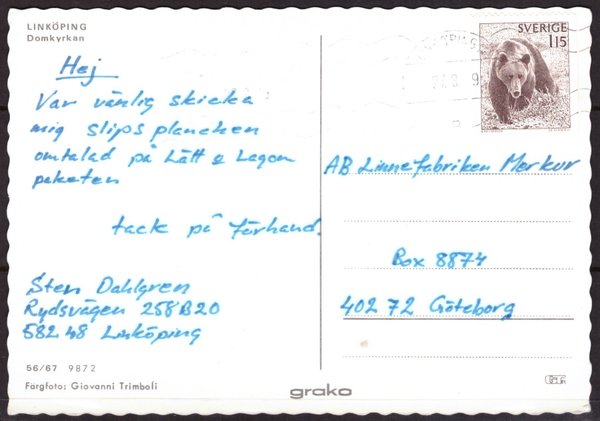 LINKÖPING
Domkyrkan
SVERIGE
115
Hej
Var vänlig skicka
mig slipsplanchen
omtalad på Lätt & Lagom
paketen
tack på förhand.
Sten Dahlgren
Rydsvägen 258B20
582 48 Linköping
AB Linnefabriken Merkur
Box 8874
402 72 Göteborg
56/67 9872
Färgfoto: Giovanni Trimboli
grako